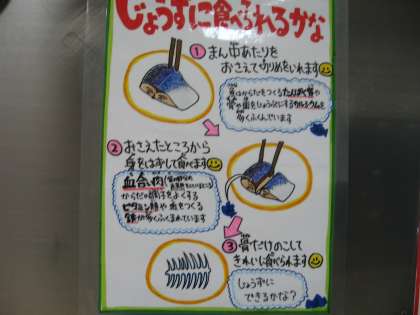 じょうずに食べられるかな
① まん中あたりを
おさえて切りめをいれます
魚はからだをつくるたんぱく質や
骨や歯をじょうぶにするカルシウムを
多くふくんでいます
② おさえたところから
身をはずして食べます
血合い肉
からだの調子をよくする
ビタミン類や血をつくる
鉄が多くふくまれています
③ 骨だけのこして
きれいに食べられます
じょうずに
できるかな？